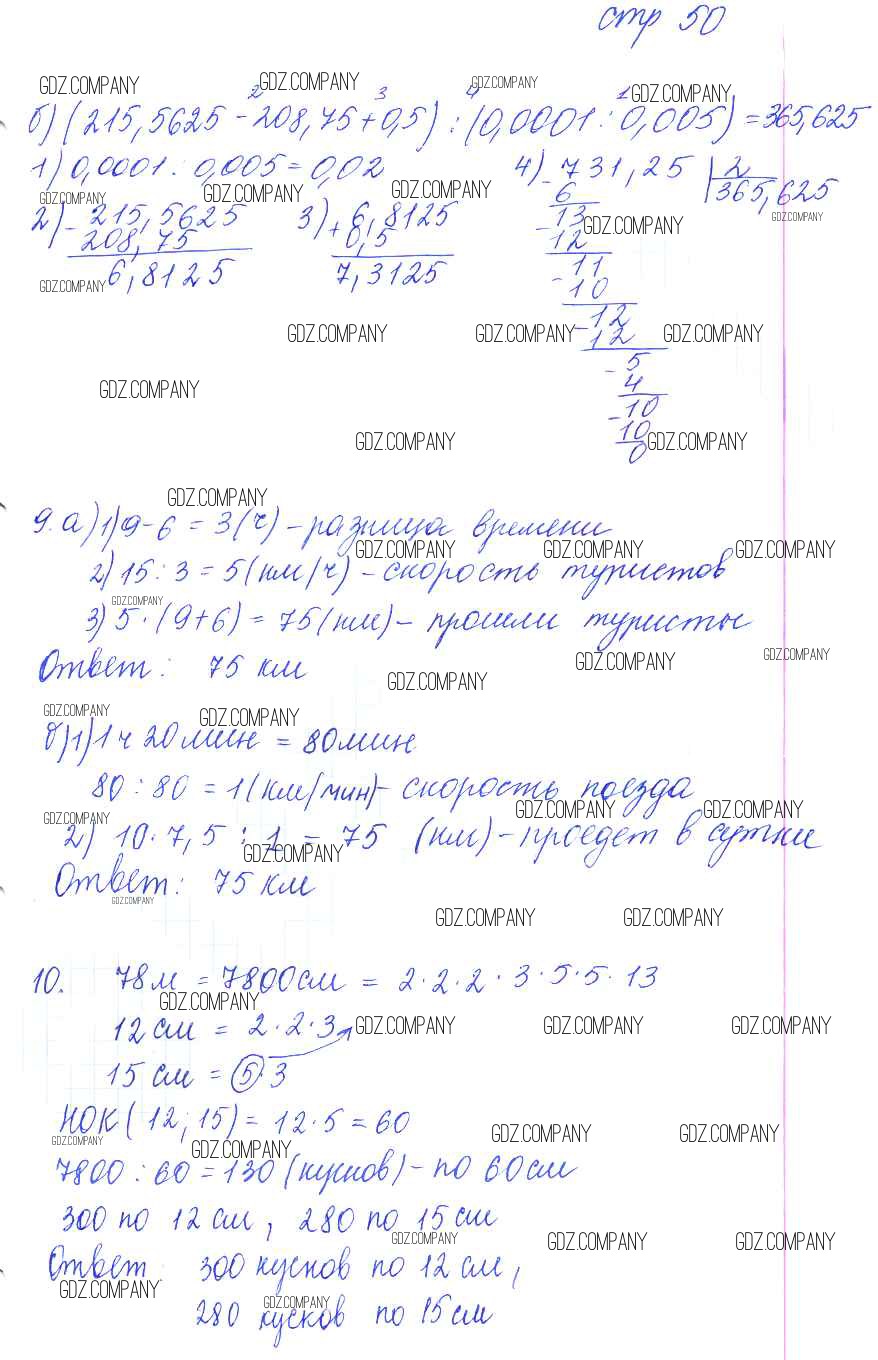 стр 50
GDZ.COMPANY GDZ.COMPANY GDZ.COMPANY GDZ.COMPANY
2 3 4 1
б) (215,5625 - 208,75 + 0,5) : (0,0001 : 0,005) = 365,625
1) 0,0001 : 0,005 = 0,02
4) - 731,25 | 2
6 365,625
GDZ.COMPANY GDZ.COMPANY GDZ.COMPANY GDZ.COMPANY
2) - 215,5625 3) + 6,8125
208,75 0,5
6,8125 7,3125
- 13
12
GDZ.COMPANY GDZ.COMPANY
- 11
10
- 12
12
GDZ.COMPANY GDZ.COMPANY GDZ.COMPANY
- 5
4
GDZ.COMPANY
- 10
10
0
GDZ.COMPANY GDZ.COMPANY
GDZ.COMPANY
9. а) 1) 9 - 6 = 3 (ч) - разница времени
GDZ.COMPANY GDZ.COMPANY GDZ.COMPANY
2) 15 : 3 = 5 (км/ч) - скорость туристов
GDZ.COMPANY
3) 5 · (9+6) = 75 (км) - прошли туристы
GDZ.COMPANY GDZ.COMPANY
Ответ: 75 км
GDZ.COMPANY
GDZ.COMPANY GDZ.COMPANY
б) 1) 1 ч 20 мин = 80 мин
80 : 80 = 1 (км/мин) - скорость поезда
GDZ.COMPANY GDZ.COMPANY GDZ.COMPANY
2) 10 · 7,5 : 1 = 75 (км) - проедет в сутки
GDZ.COMPANY
Ответ: 75 км
GDZ.COMPANY
GDZ.COMPANY GDZ.COMPANY
10. 78 м = 7800 см = 2 · 2 · 2 · 3 · 5 · 5 · 13
GDZ.COMPANY
12 см = 2 · 2 · 3
GDZ.COMPANY GDZ.COMPANY GDZ.COMPANY
15 см = 5 · 3
НОК (12; 15) = 12 · 5 = 60
GDZ.COMPANY GDZ.COMPANY GDZ.COMPANY GDZ.COMPANY
7800 : 60 = 130 (кусков) - по 60 см
300 по 12 см, 280 по 15 см
GDZ.COMPANY GDZ.COMPANY GDZ.COMPANY
Ответ 300 кусков по 12 см,
GDZ.COMPANY GDZ.COMPANY
280 кусков по 15 см